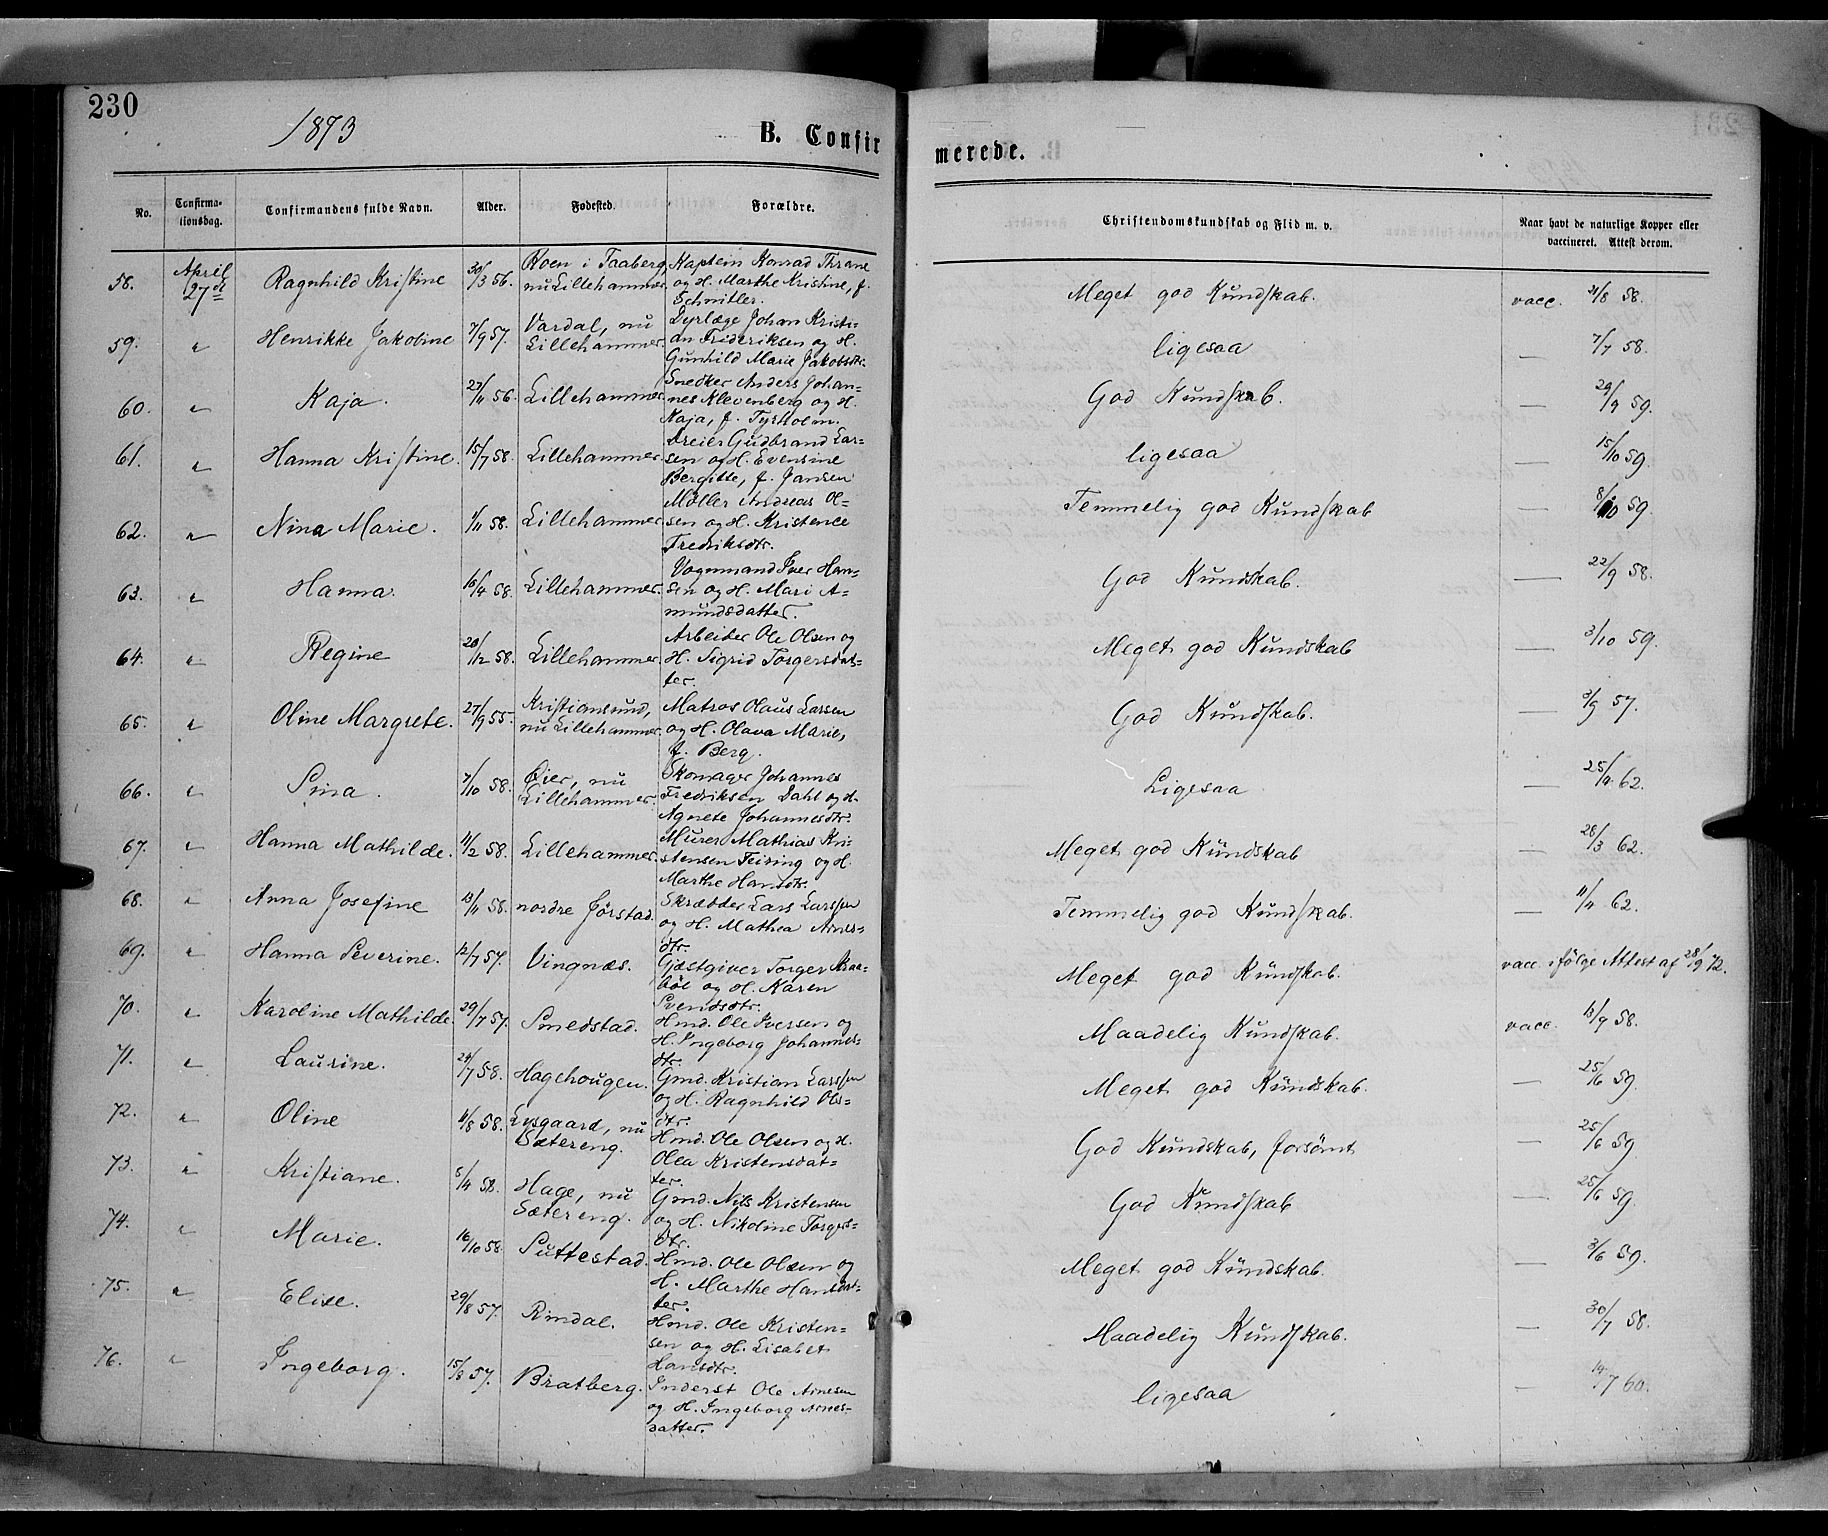 230
1873
B. Confirmerede.
No. Confirmationsdag. Confirmandens fulde Navn. Alder. Fødested. Forældre. Christendomskundskab og Flid m. v. Naar havt de naturlige Kopper eller vaccineret. Attest derom.
58. April 27de Ragnhild Kristine 30/3 56. Roen i Faaberg, nu Lillehammer. Kaptein Konrad Thrane og H. Marthe Kristine, f. Schnitler. Meget god Kundskab. vacc. 21/8 58.
59. " Henrikke Jakobine 7/9 57. Vardal, nu Lillehammer. Dyrlæge Johan Kristian Frideriksen og H. Gunhild Marie Jakobsdtr. ligesaa — 7/7 58.
60. " Kaja. 27/11 56. Lillehammer Snedker Anders Johannes Klevenberg og H. Kaja, f. Tyrholm. God Kundskab. — 29/9 59.
61. " Hanna Kristine. 15/7 58. Lillehammer. Dreier Gudbrand Larsen og H. Evensine Bergitte, f. Jansen ligesaa — 15/10 59.
62. " Nina Marie. 1/11 58. Lillehammer Møller Andreas Olsen og H. Kristence Fredriksdtr. Temmelig god Kundskab — 8/10 59.
63. " Hanna. 16/4 58. Lillehammer. Vognmand Iver Hansen og H. Mari Amundsdatter. God Kundskab. — 22/9 58.
64. " Regine 20/12 58. Lillehammer. Arbeider Ole Olsen og H. Sigrid Torgersdatter. Meget god Kundskab — 3/10 59.
65. " Oline Margrete. 27/9 55. Kristiansund, nu Lillehammer. Matros Olaus Larsen og H. Olava Marie, f. Berg. God Kundskab. — 3/9 57.
66. " Sina. 7/10 58. Øier, nu Lillehammer. Skomager Johannes Fredriksen Dahl og H. Agnete Johannesdtr. Ligesaa — 25/9 62.
67. " Hanna Mathilde. 11/2 58. Lillehammer. Murer Mathias Kristensen Feiring og H. Marthe Hansdtr. Meget god Kundskab — 28/3 62.
68. " Anna Josefine 13/11 58. nordre Jørstad. Skrædder Lars Larssen og H. Mathea Arnesdtr. Temmelig god Kundskab. — 11/11 62.
69. " Hanna Severine. 12/7 57. Vingnæs. Gjæstgiver Torger Kraabøl og H. Karen Svendsdtr. Meget god Kundskab. vacc. ifølge Attest af 28/9 72.
70. " Karoline Mathilde. 29/7 57. Smedstad. Hmd. Ole Iversen og H. Ingeborg Johannesdtr. Maadelig Kundskab. vacc. 13/9 58.
71. " Laurine. 24/7 58. Hagehougen. Gmd. Kristian Larssen og H. Ragnhild Olsdtr. Meget god Kundskab — 25/6 59.
72. " Oline 11/8 58. Lysgaard, nu Sætereng. Hmd. Ole Olsen og H. Olea Kristensdatter. God Kundskab, forsømt — 25/6 59
73. " Kristiane. 5/4 58. Hage, nu Sætereng. Gmd. Nils Kristensen og H. Nikoline Torgersdtr. God Kundskab — 25/6 59.
74. " Marie. 16/10 58. Suttestad. Hmd. Ole Olsen og H. Marthe Hansdatter. Meget god Kundskab. — 3/6 59.
75. " Elise. 29/8 57. Rindal. Hmd. Ole Kristensen og H. Lisabet Hansdtr. Maadelig Kundskab. — 30/7 58.
76. " Ingeborg. 15/8 57. Bratberg. Inderst Ole Arnesen og H. Ingeborg Arnesdatter. ligesaa — 14/7 60.